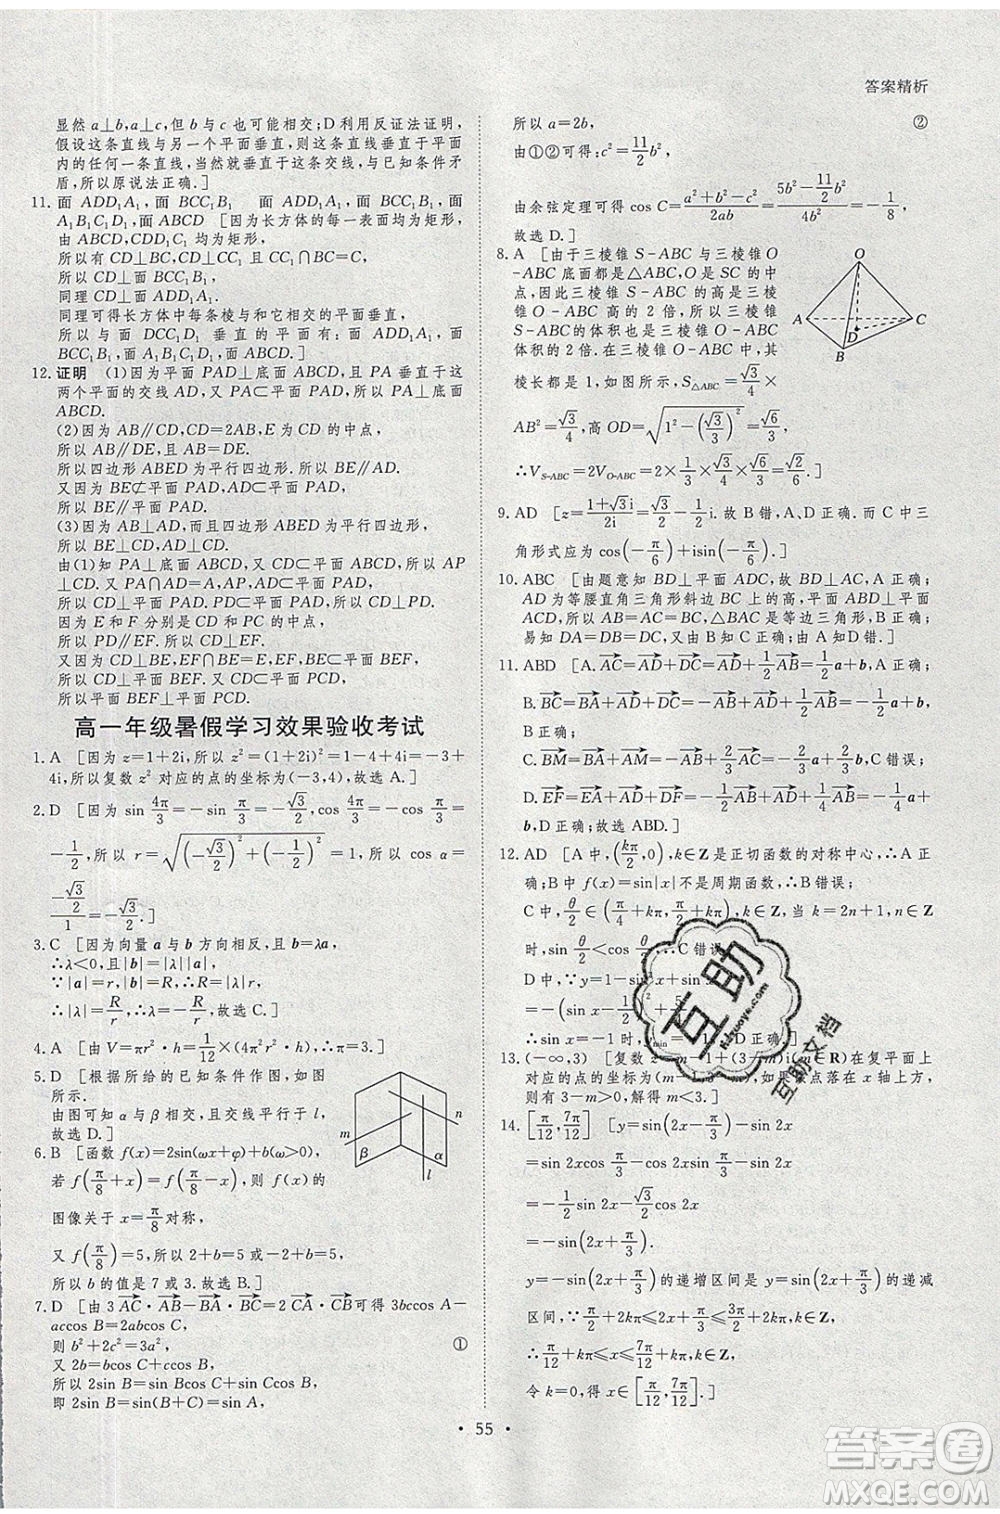 答案精析
显然 a⊥b,a⊥c,故 b 与 c 也可能相交;D 利用反证法证明,
假设这条直线与另一个平面垂直,则这条直线与另一个平面
内的任何一条直线,当然就垂直于这条交线,与已知条件矛
盾,所以原说法正确.]
11. 面 ADD₁A₁,面 BCC₁B₁ 面 ADD₁A₁,面 BCC₁B₁,面
A₁B₁C₁D₁,面 ABCD [因为长方体的每一表面均为矩形,
由 ABCD,CDD₁C₁ 均为矩形,
所以有 CD⊥BC,CD⊥CC₁,CC₁∩BC=C,
所以 CD⊥面 BCC₁B₁,
同理 CD⊥面 ADD₁A₁.
同理可得长方体中每条棱与和它相交的平面垂直,
所以与面 DCC₁D₁ 垂直的平面有:面 ADD₁A₁,面
BCC₁B₁,面 A₁B₁C₁D₁,面 ABCD.]
12. 证明 (1)因为平面 PAD⊥底面 ABCD,且 PA 垂直于这
两个平面的交线 AD,PA⊂平面 PAD,所以 PA⊥底面
ABCD.
(2)因为 AB∥CD,CD=2AB,E 为 CD 的中点,
所以 AB∥DE,且 AB=DE.
所以四边形 ABED 为平行四边形.所以 BE∥AD.
又因为 BE⊄平面 PAD,AD⊂平面 PAD,
所以 BE∥平面 PAD.
(3)因为 AB⊥AD,而且 ABED 为平行四边形,
所以 BE⊥CD,AD⊥CD.
由(1)知 PA⊥底面 ABCD,CD⊂平面 ABCD,所以 AP⊥
CD.又因为 PA∩AD=A,PA,AD⊂平面 PAD,
所以 CD⊥平面 PAD.PD⊂平面 PAD,所以 CD⊥PD.
因为 E 和 F 分别是 CD 和 PC 的中点,
所以 PD∥EF.所以 CD⊥EF.
又因为 CD⊥BE,EF∩BE=E,所以 CD⊥平面 BEF.
所以平面 BEF⊥平面 PCD.
高一年级暑假学习效果验收考试
1. A [因为 z=1+2i,所以 z²=(1+2i)²=1-4+4i=-3+
4i,所以复数 z² 对应的点的坐标为(-3,4),故选 A.]
2. D [因为 sin 4π/3=-sin π/3=-√3/2,cos 4π/3=-cos π/3=
-1/2,所以 r=√((-√3/2)²+(-1/2)²)=1,所以 cos α=
(-√3/2)/1=-√3/2.]
3. C [因为向量 a 与 b 方向相反,且 b=λa,
∴λ<0,且|b|=|λa|=|λ||a|,
∵|a|=r,|b|=R,∴R=|λ|r,
∴|λ|=R/r,∴λ=-R/r,故选 C.]
4. A [由 V=πr²·h=1/12×(2πr)²·h,得 π=3.故选 A.]
5. D [根据所给的已知条件作图,如图
所示.
由图可知 α 与 β 相交,且交线平行于 l,
故选 D.]
m n β α l
6. B [函数 f(x)=2sin(ωx+φ)+b(ω>0),
若 f(π/8+x)=f(π/8-x),则函数 f(x)的
图像关于 x=π/8 对称,
又 f(π/8)=5,所以±2+b=5,
所以 b 的值是 7或 3.故选 B.]
7. D [由 3AC·AB-BA·BC=2CA·CB可得 3bccos A-
accos B=2abcos C,
则 b²+2c²=3a², ①
又 2b=bcos C+ccos B,
所以 4b=2bcos C+2ccos B,
即 2sin B=sin(B+C)=sin A,
所以 a=2b, ②
由①②可得:c²=11/2 b²,
由余弦定理可得 cos C=(a²+b²-c²)/2ab=(5b²-11/2 b²)/4b²=-1/8,
故选 D.]
8. A [由于三棱锥 S-ABC 与三棱锥
O-ABC 底面都是△ABC,O 是 SC 的中点,
因此三棱锥 S-ABC 的高是三棱
锥 O-ABC 高的 2 倍,所以三棱锥
S-ABC的体积也是三棱锥 O-ABC
体积的 2 倍.在三棱锥 O-ABC 中,其
棱长都是 1,如图所示,S△ABC=√3/4×
AB²=√3/4,高 OD=√(1²-(√3/3)²)=√6/3,
∴V_S-ABC=2V_O-ABC=2×1/3×√3/4×√6/3=√2/6.]
O A C D B
9. AD [z=(1+√3i)/2i=√3/2-1/2i.故 B 错,A、D 正确.而 C 中三
角形式应为 cos(-π/6)+isin(-π/6).]
10. ABC [由题意知 BD⊥平面 ADC,故 BD⊥AC,A 正确;
AD 为等腰直角三角形斜边 BC 上的高,平面 ABD⊥平面
ACD,所以 AB=AC=BC,△BAC 是等边三角形,B 正确;
易知 DA=DB=DC,又由 B 知 C 正确;由 A 知 D 错.]
11. ABD [A.AC=AD+DC=AD+1/2AB=1/2a+b,A 正确;
B.BC=BA+AC=-AB+AD+1/2AB=-1/2a+b,B 正确;
C.BM=BA+AM=-AB+1/2AC=-3/4a+1/2b,C 错误;
D.EF=EA+AD+DF=-1/2AB+AD+1/4AB=-1/4a+
b,D 正确;故选 ABD.]
12. AD [A 中,(kπ/2,0),k∈Z是正切函数的对称中心,∴A正
确;B 中 f(x)=sin|x|不是周期函数,∴B错误;
C 中,θ/2∈(π/4+kπ,π/2+kπ),k∈Z,当 k=2n+1,n∈Z
时,sin θ/2<cos θ/2,∴C错误;
13. (-∞,3) [复数 z=m-1+(3-m)i(m∈R)在复平面上
对应的点的坐标为(m-1,3-m).如果该点落在 x 轴上方,
则有 3-m>0,解得 m<3.]
14. [π/12,7π/12] [y=sin(2x-π/3)-sin 2x
=-1/2sin 2x-√3/2cos 2x
=-sin(2x+π/3).
y=-sin(2x+π/3)的递增区间是 y=sin(2x+π/3)的递减
区间,π/2+2kπ≤2x+π/3≤3π/2+2kπ,k∈Z,
∴π/12+kπ≤x≤7π/12+kπ,k∈Z,
令 k=0,得 x∈[π/12,7π/12].]
• 55 •
互助
互助文档
答案圈
MXQE.COM